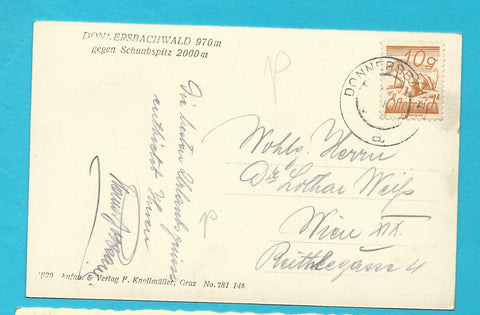 DONNERSBACHWALD 970m
gegen Schaabspitz 2000m
Die besten Urlaubsgrüsse
entbietet Ihnen
DONNERSB
a
10g
Österreich
Wohlg. Herrn
Dr. Lothar Weiß
Wien XIX.
4
1929 Aufn. & Verlag F. Knollmüller, Graz No. 781 148